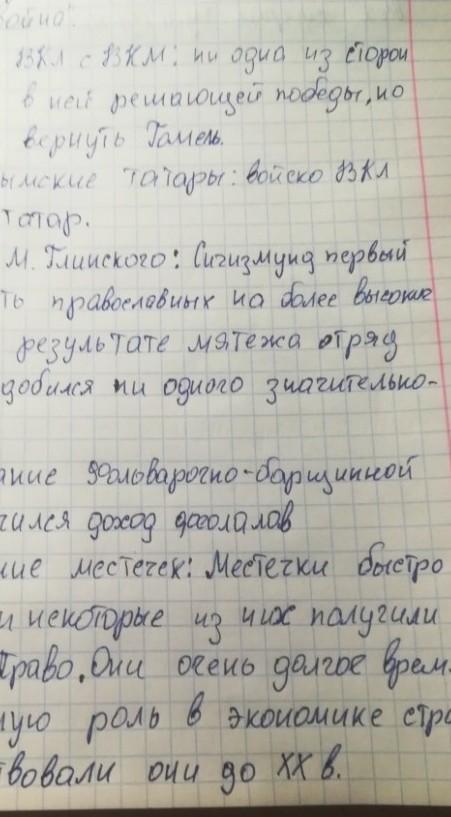 ойна".
ВКЛ с ВКМ: ни одна из сторон
в ней решающей победы, но
вернуть Гомель.
ымские татары: войско ВКЛ
татар.
М. Глинского: Сигизмунд первый
ть православных на более высокие
результате мятежа отряд
добился ни одного значительно-
ание фольварочно-барщинной
чился доход
ние местечек: Местечки быстро
и некоторые из них получили
Право. Они очень долгое врем
ную роль в экономике стра
твовали они до XX в.